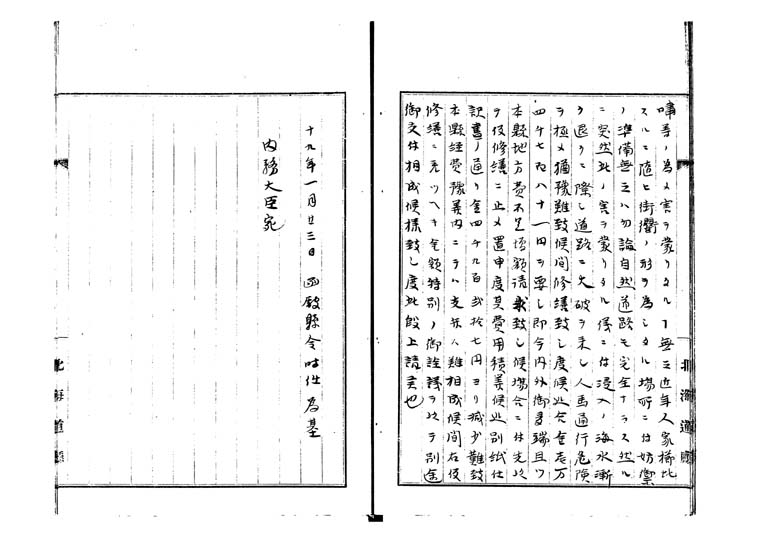 嘯等ノ為メ害ヲ蒙リタル丁無之近年人家櫛比
スルニ随ヒ街衢ノ形ヲ為シタル場所ニ付防禦
ノ準備無之ハ勿論自然道路モ完全ナラス然ル
ニ突然此ノ害ヲ蒙リタル儀ニ付浸入ノ海水漸
ク退クニ際シ道路ニ大破ヲ来シ人馬通行危険
ヲ極メ猶豫難致候間修繕致シ度候処合金壱万
四千七百八十一円ヲ要シ即今内外御多端且ツ
本縣地方費不足填額請求致シ候場合ニ付先以
テ仮修繕ニ止メ置申度其費用積算候処別紙仕
訳書ノ通リ金四千九百弐拾七円ヨリ減少難致
本縣経費豫算内ニテハ支弁ハ難相成候間右仮
修繕ニ充ツヘキ金額特別ノ御詮議ヲ以テ別途
御交付相成候様致シ度此段上請候也
十九年一月廿三日 函館縣令時任為基
内務大臣宛
北海道廳
北海道廳